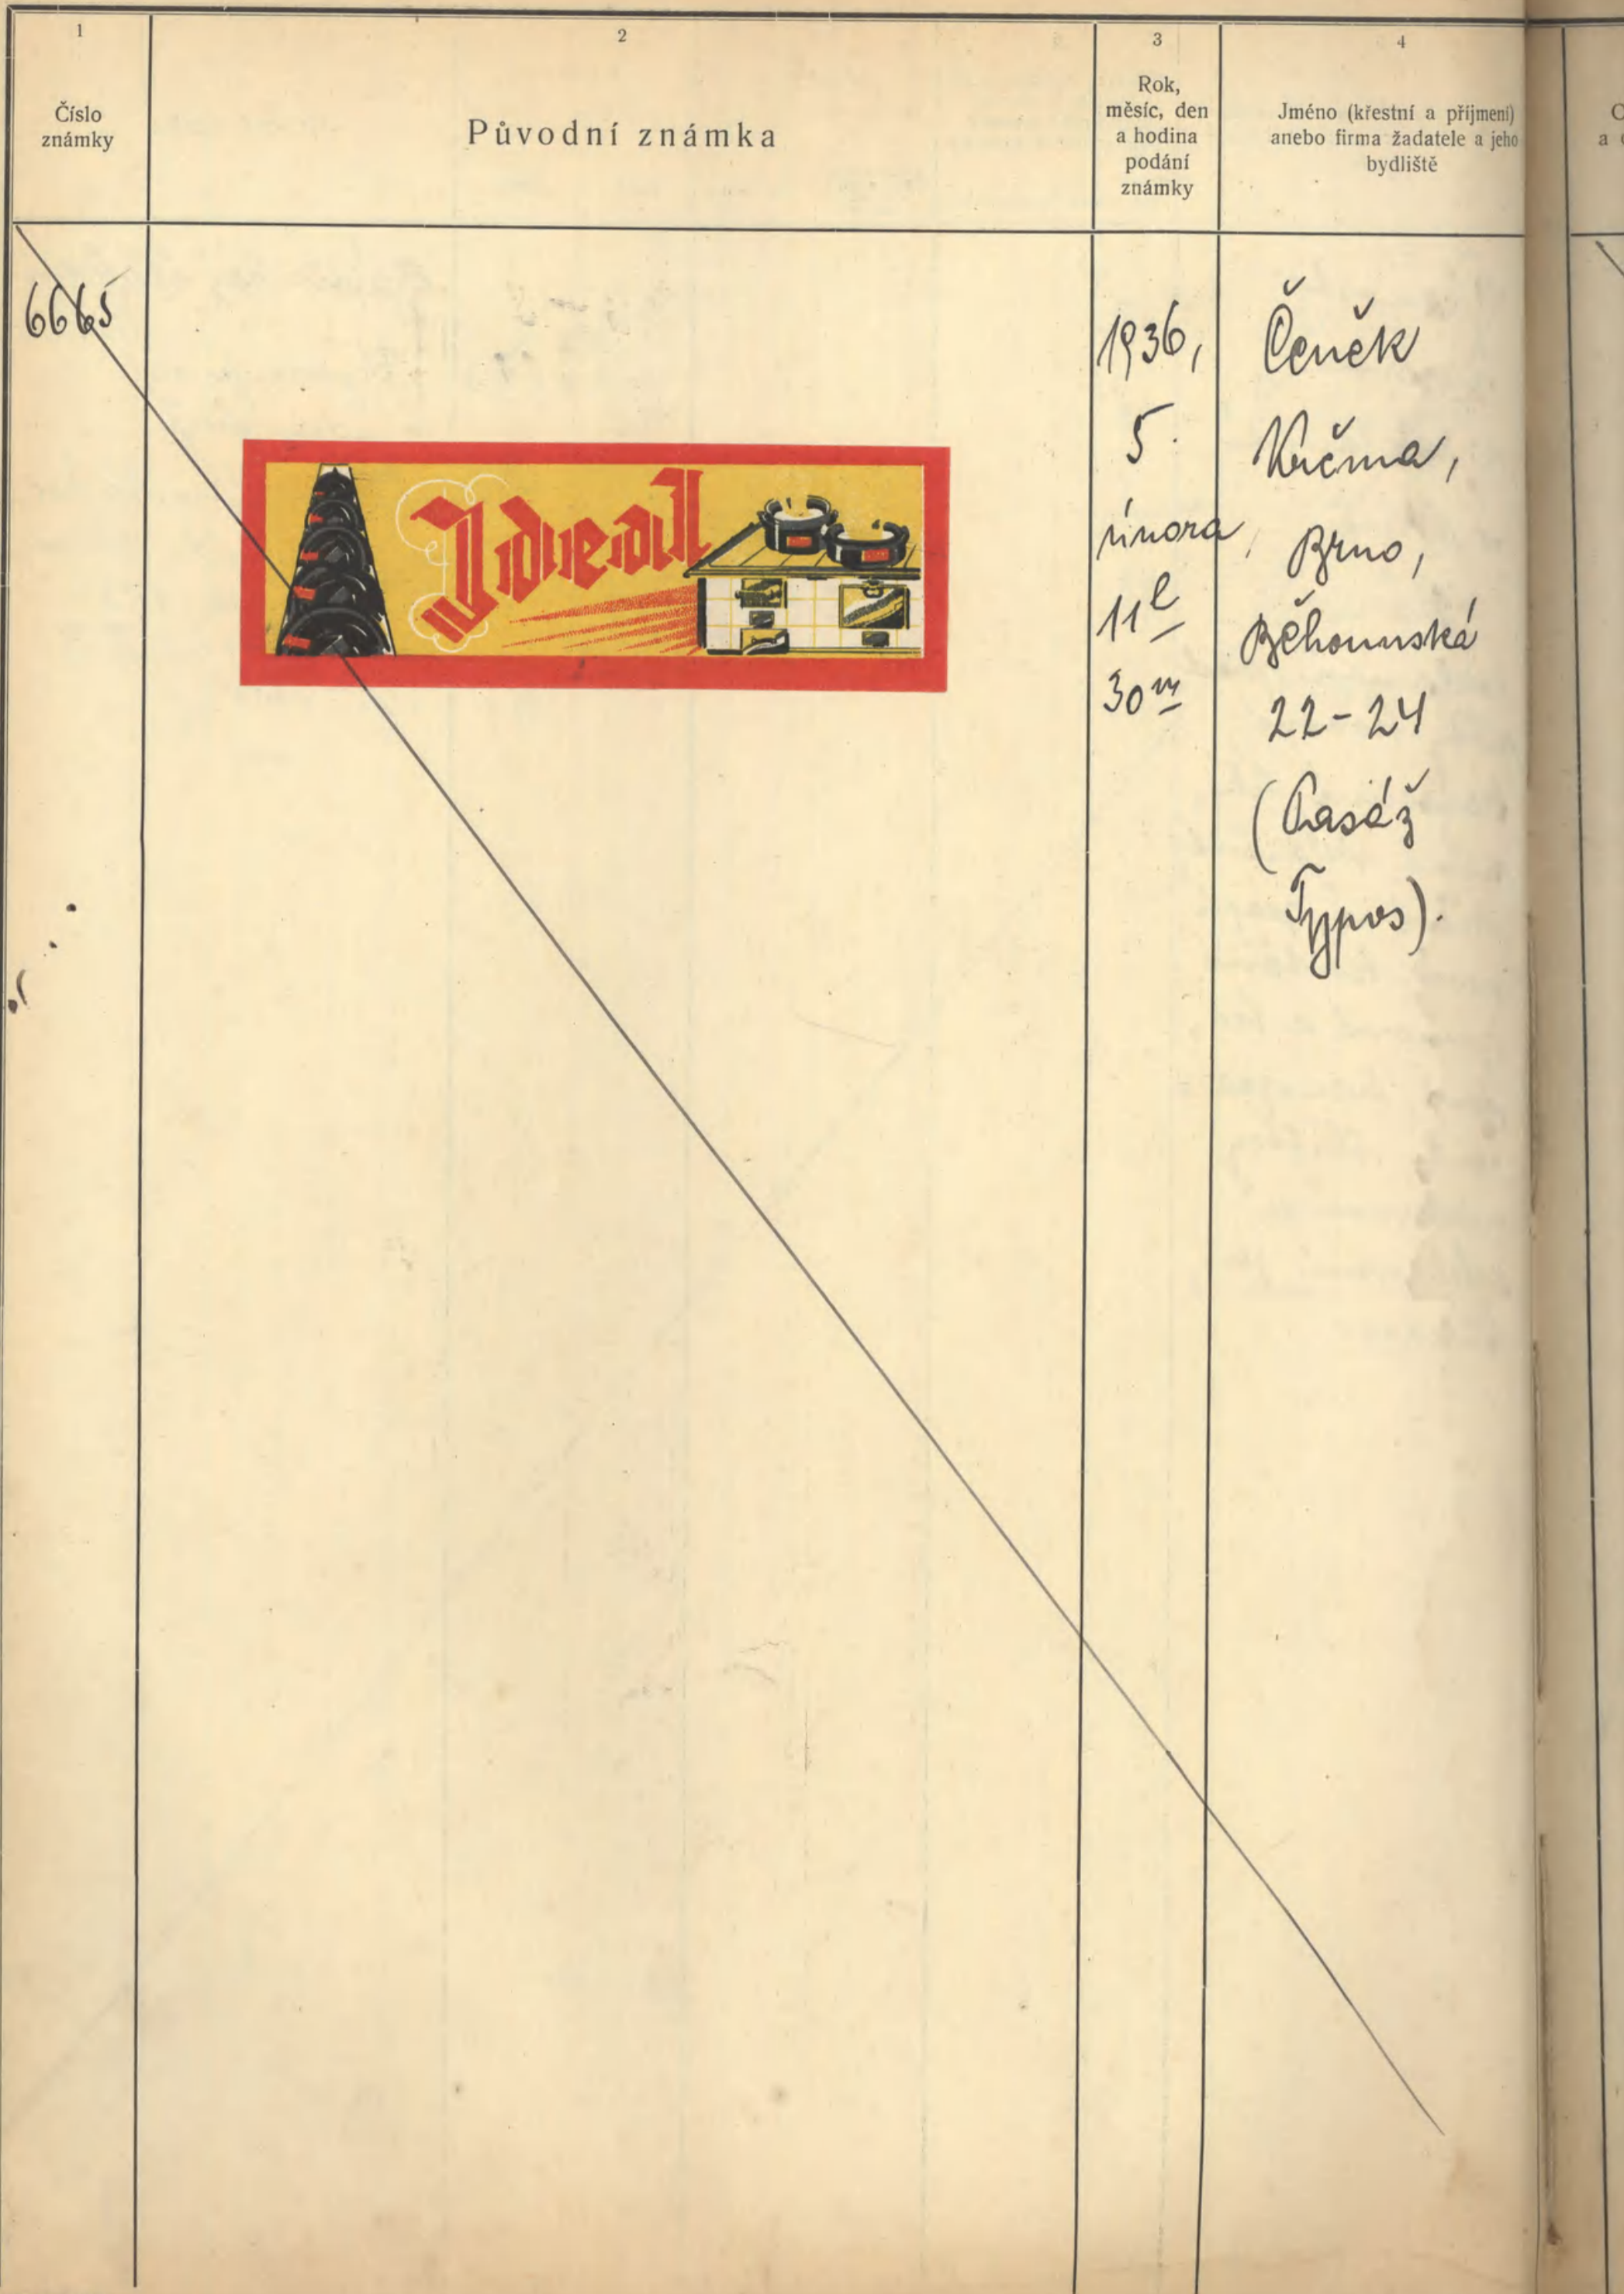 1
Číslo
známky
2
Původní známka
3
Rok,
měsíc, den
a hodina
podání
známky
4
Jméno (křestní a příjmení)
anebo firma žadatele a jeho
bydliště
6665
Ideal
1936,
5.
února,
11 h
30 m
Čeněk
Krčma,
Brno,
Běhounská
22-24
(Pasáž
Typos).